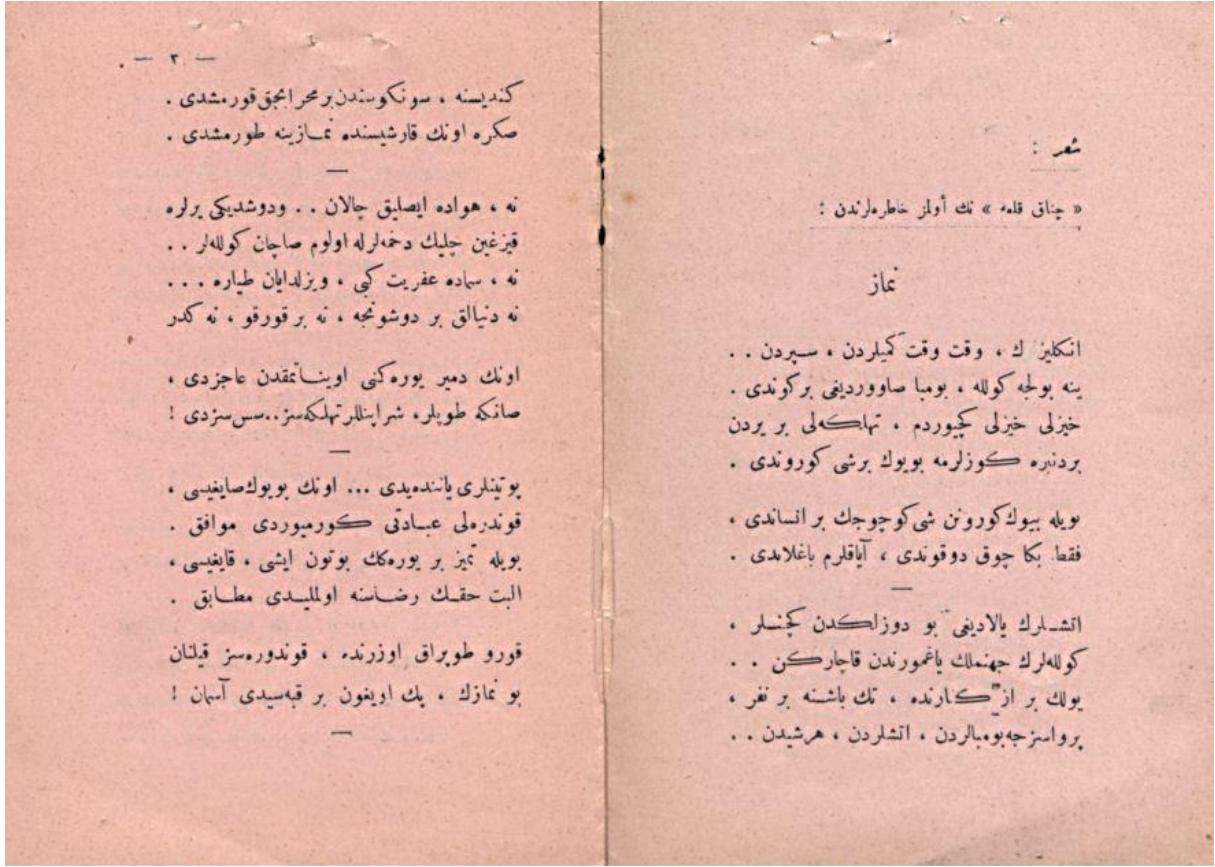 شعر :
« چناق قلعه » نك أولمز خاطره‌لرندن :
نماز
انكليزك ، وقت وقت كميلردن ، سپردن . .
ينه بولجه كولله ، بومبا صاوورديغى بركوندى .
خيزلى خيزلى كچيوردم ، تهلكه‌لى بر يردن
بردنبره كوزلرمه بويوك برشى كوروندى .
بويله بيوك كورونن شى كوچوجك بر انساندى ،
فقط بكا چوق دوقوندى ، آياقلرم باغلاندى .
اتشلرك يالاديغى بو دوزلكدن كچنلر ،
كولله‌لرك جهنملك ياغمورندن قاچاركن . .
يولك بر از كنارنده ، تك باشنه بر نفر ،
پرواسزجه بومبالردن ، اتشلردن ، هرشيدن . .
— ٢ —
كنديسنه ، سونكوسندن بر محرابجق قورمشدى .
صكره اونك قارشيسنده نمازينه طورمشدى .
نه ، هواده ايصليق چالان . . ودوشديكى يرلره
قيزغين چليك دخمه‌لرله اولوم صاچان كولله‌لر . .
نه ، سماده عفريت كبى ، ويزلدايان طياره . . .
نه دنيالق بر دوشونجه ، نه بر قورقو ، نه كدر
اونك دمير يوره‌كنى اويناتمقدن عاجزدى ،
صانكه طوپلر، شراپنللر تهلكه‌سز..سس‌سزدى !
پوتينلرى ياننده‌يدى ... اونك بويوك صايغيسى ،
قوندره‌لى عبادتى كورميوردى موافق .
بويله تميز بر يوره‌كك بوتون ايشى ، قايغيسى ،
البت حقك رضاسنه اولمليدى مطابق .
قورو طوپراق اوزرنده ، قوندوره‌سز قيلنان
بو نمازك ، پك اويغون بر قبه‌سيدى آسمان !